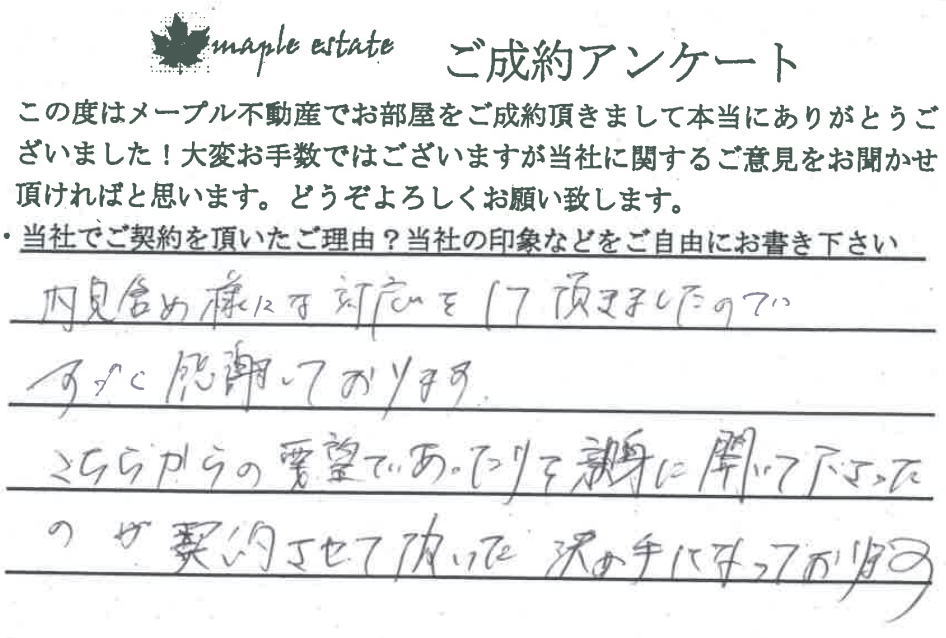 maple estate ご成約アンケート
この度はメープル不動産でお部屋をご成約頂きまして本当にありがとうご
ざいました！大変お手数ではございますが当社に関するご意見をお聞かせ
頂ければと思います。どうぞよろしくお願い致します。
・当社でご契約を頂いたご理由？当社の印象などをご自由にお書き下さい
内見含め様々な対応をして頂きましたので
感謝しております。
こちらからの要望であったりを親身に聞いて下さった
のが契約させて頂いた決め手になっております